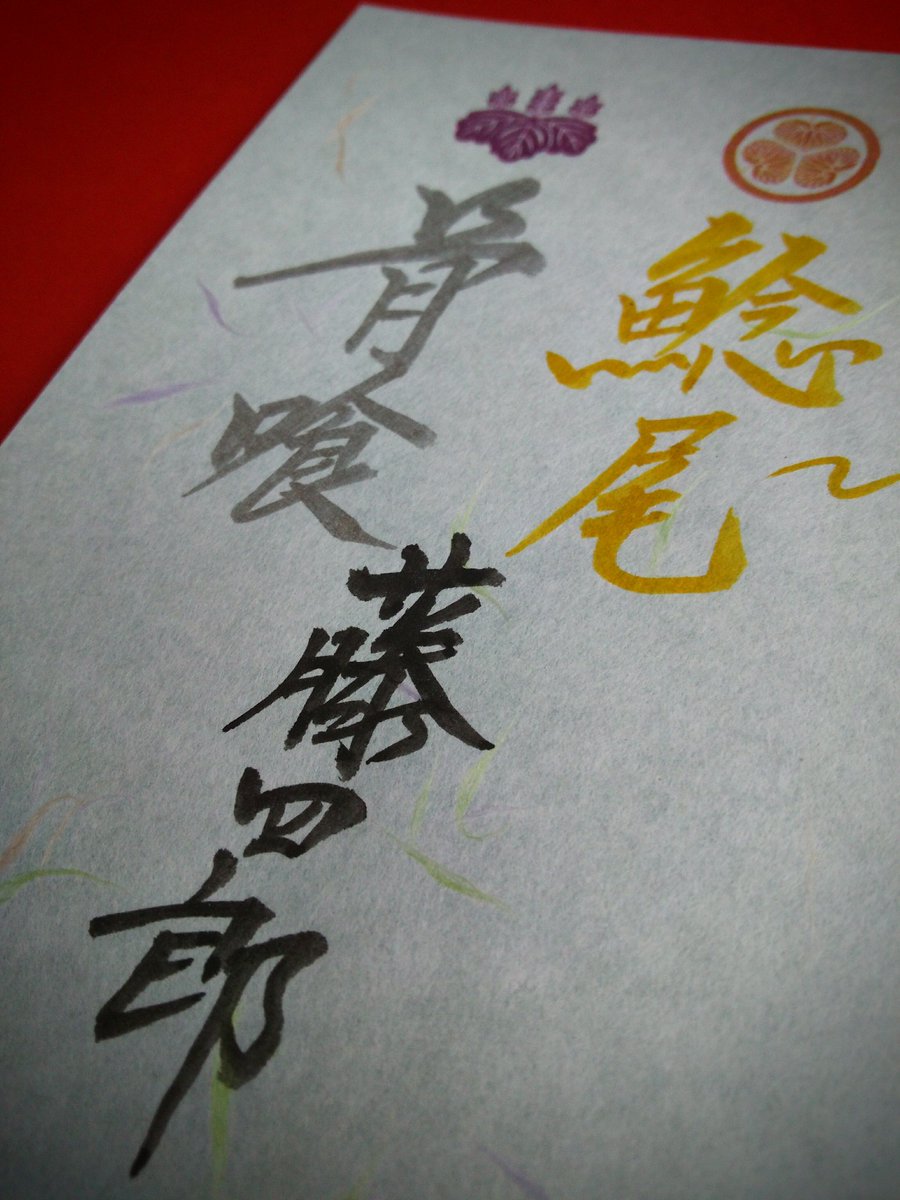 鯰尾
骨喰
藤四郎